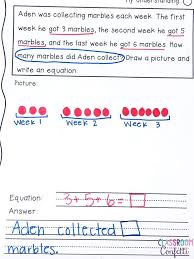 My Understanding
Aden was collecting marbles each week. The first
week he got 3 marbles, the second week he got 5
marbles, and the last week he got 6 marbles. How
many marbles did Aden collect? Draw a picture and
write an equation.
Picture:
Week 1 Week 2 Week 3
Equation: 3+5+6=
Answer:
Aden collected
marbles.
CLASSROOM
Confetti